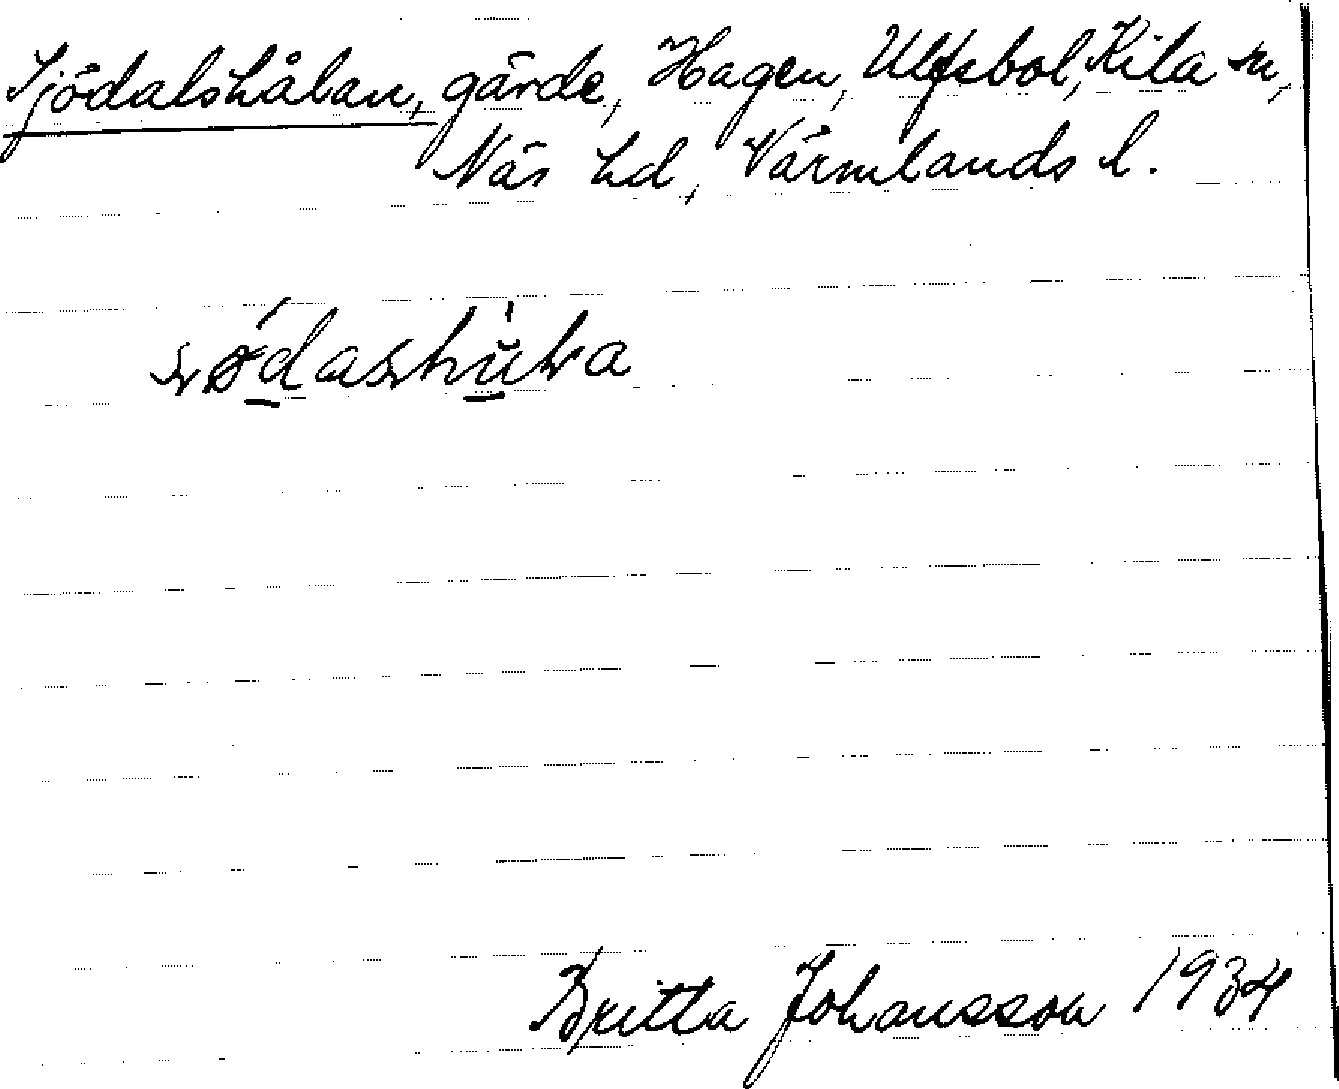 Sjödalshålan, gärde, Hagen, Ulfsbol, Kila sn,
Näs hd, Värmlands l.
Britta Johansson 1934